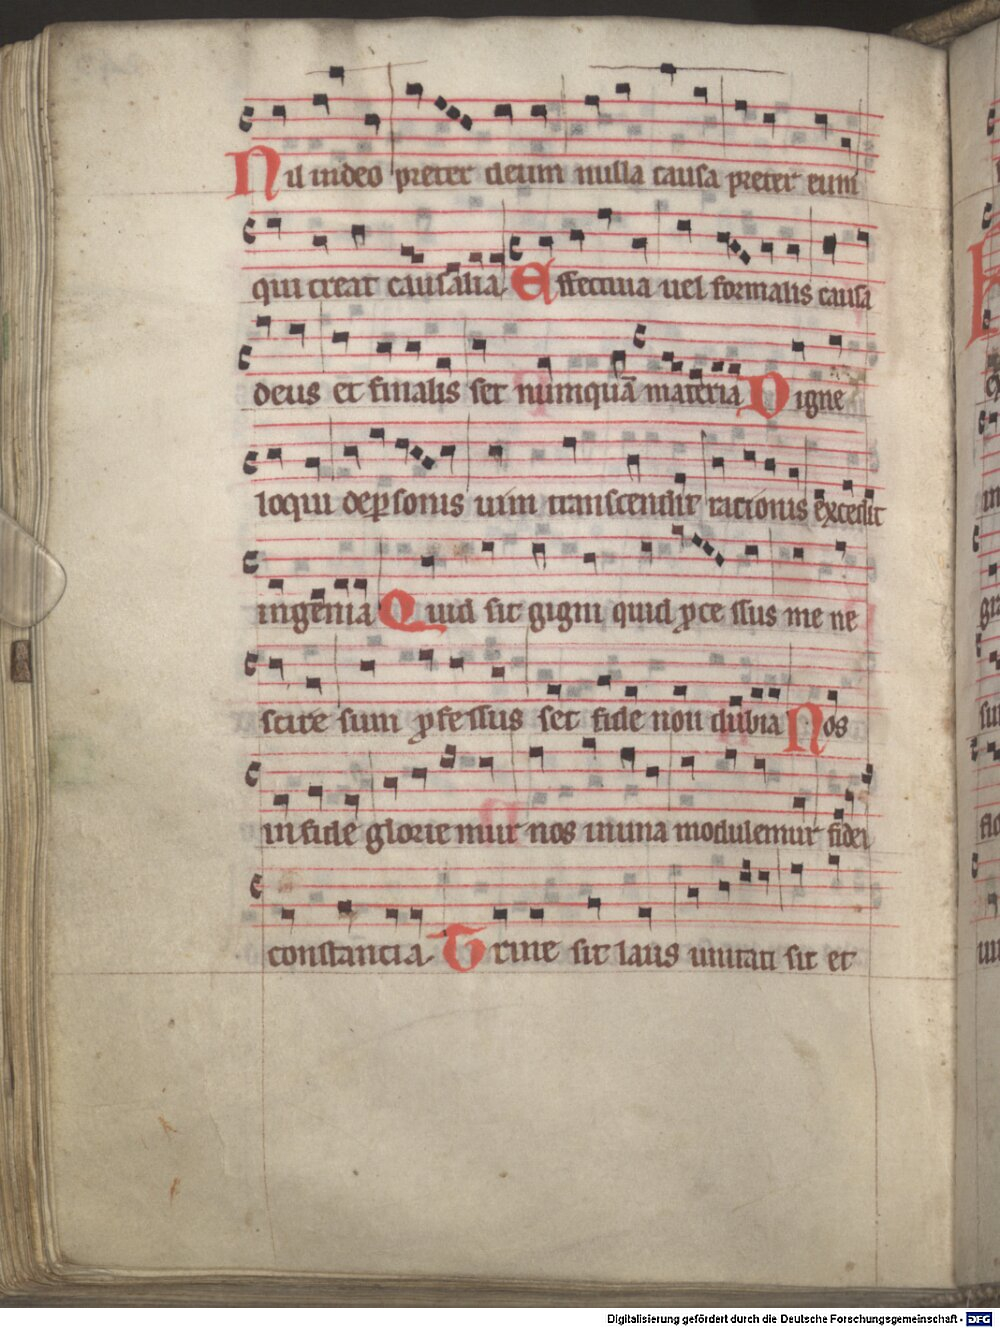 Nil indeo preter deum nulla causa preter eum
qui creat causalia. Effectiua uel formalis causa
deus et finalis set numquā materia Digne
loqui deꝑsonis uim transcendit racionis excedit
ingenia Quid sit gigni quid ꝓcessus me ne
scire sum ꝓfessus set fide non dubia Nos
infide glorie mur nos inuna modulemur fidei
constancia. Trine sit laus unitati sit et
Digitalisierung gefördert durch die Deutsche Forschungsgemeinschaft - DFG